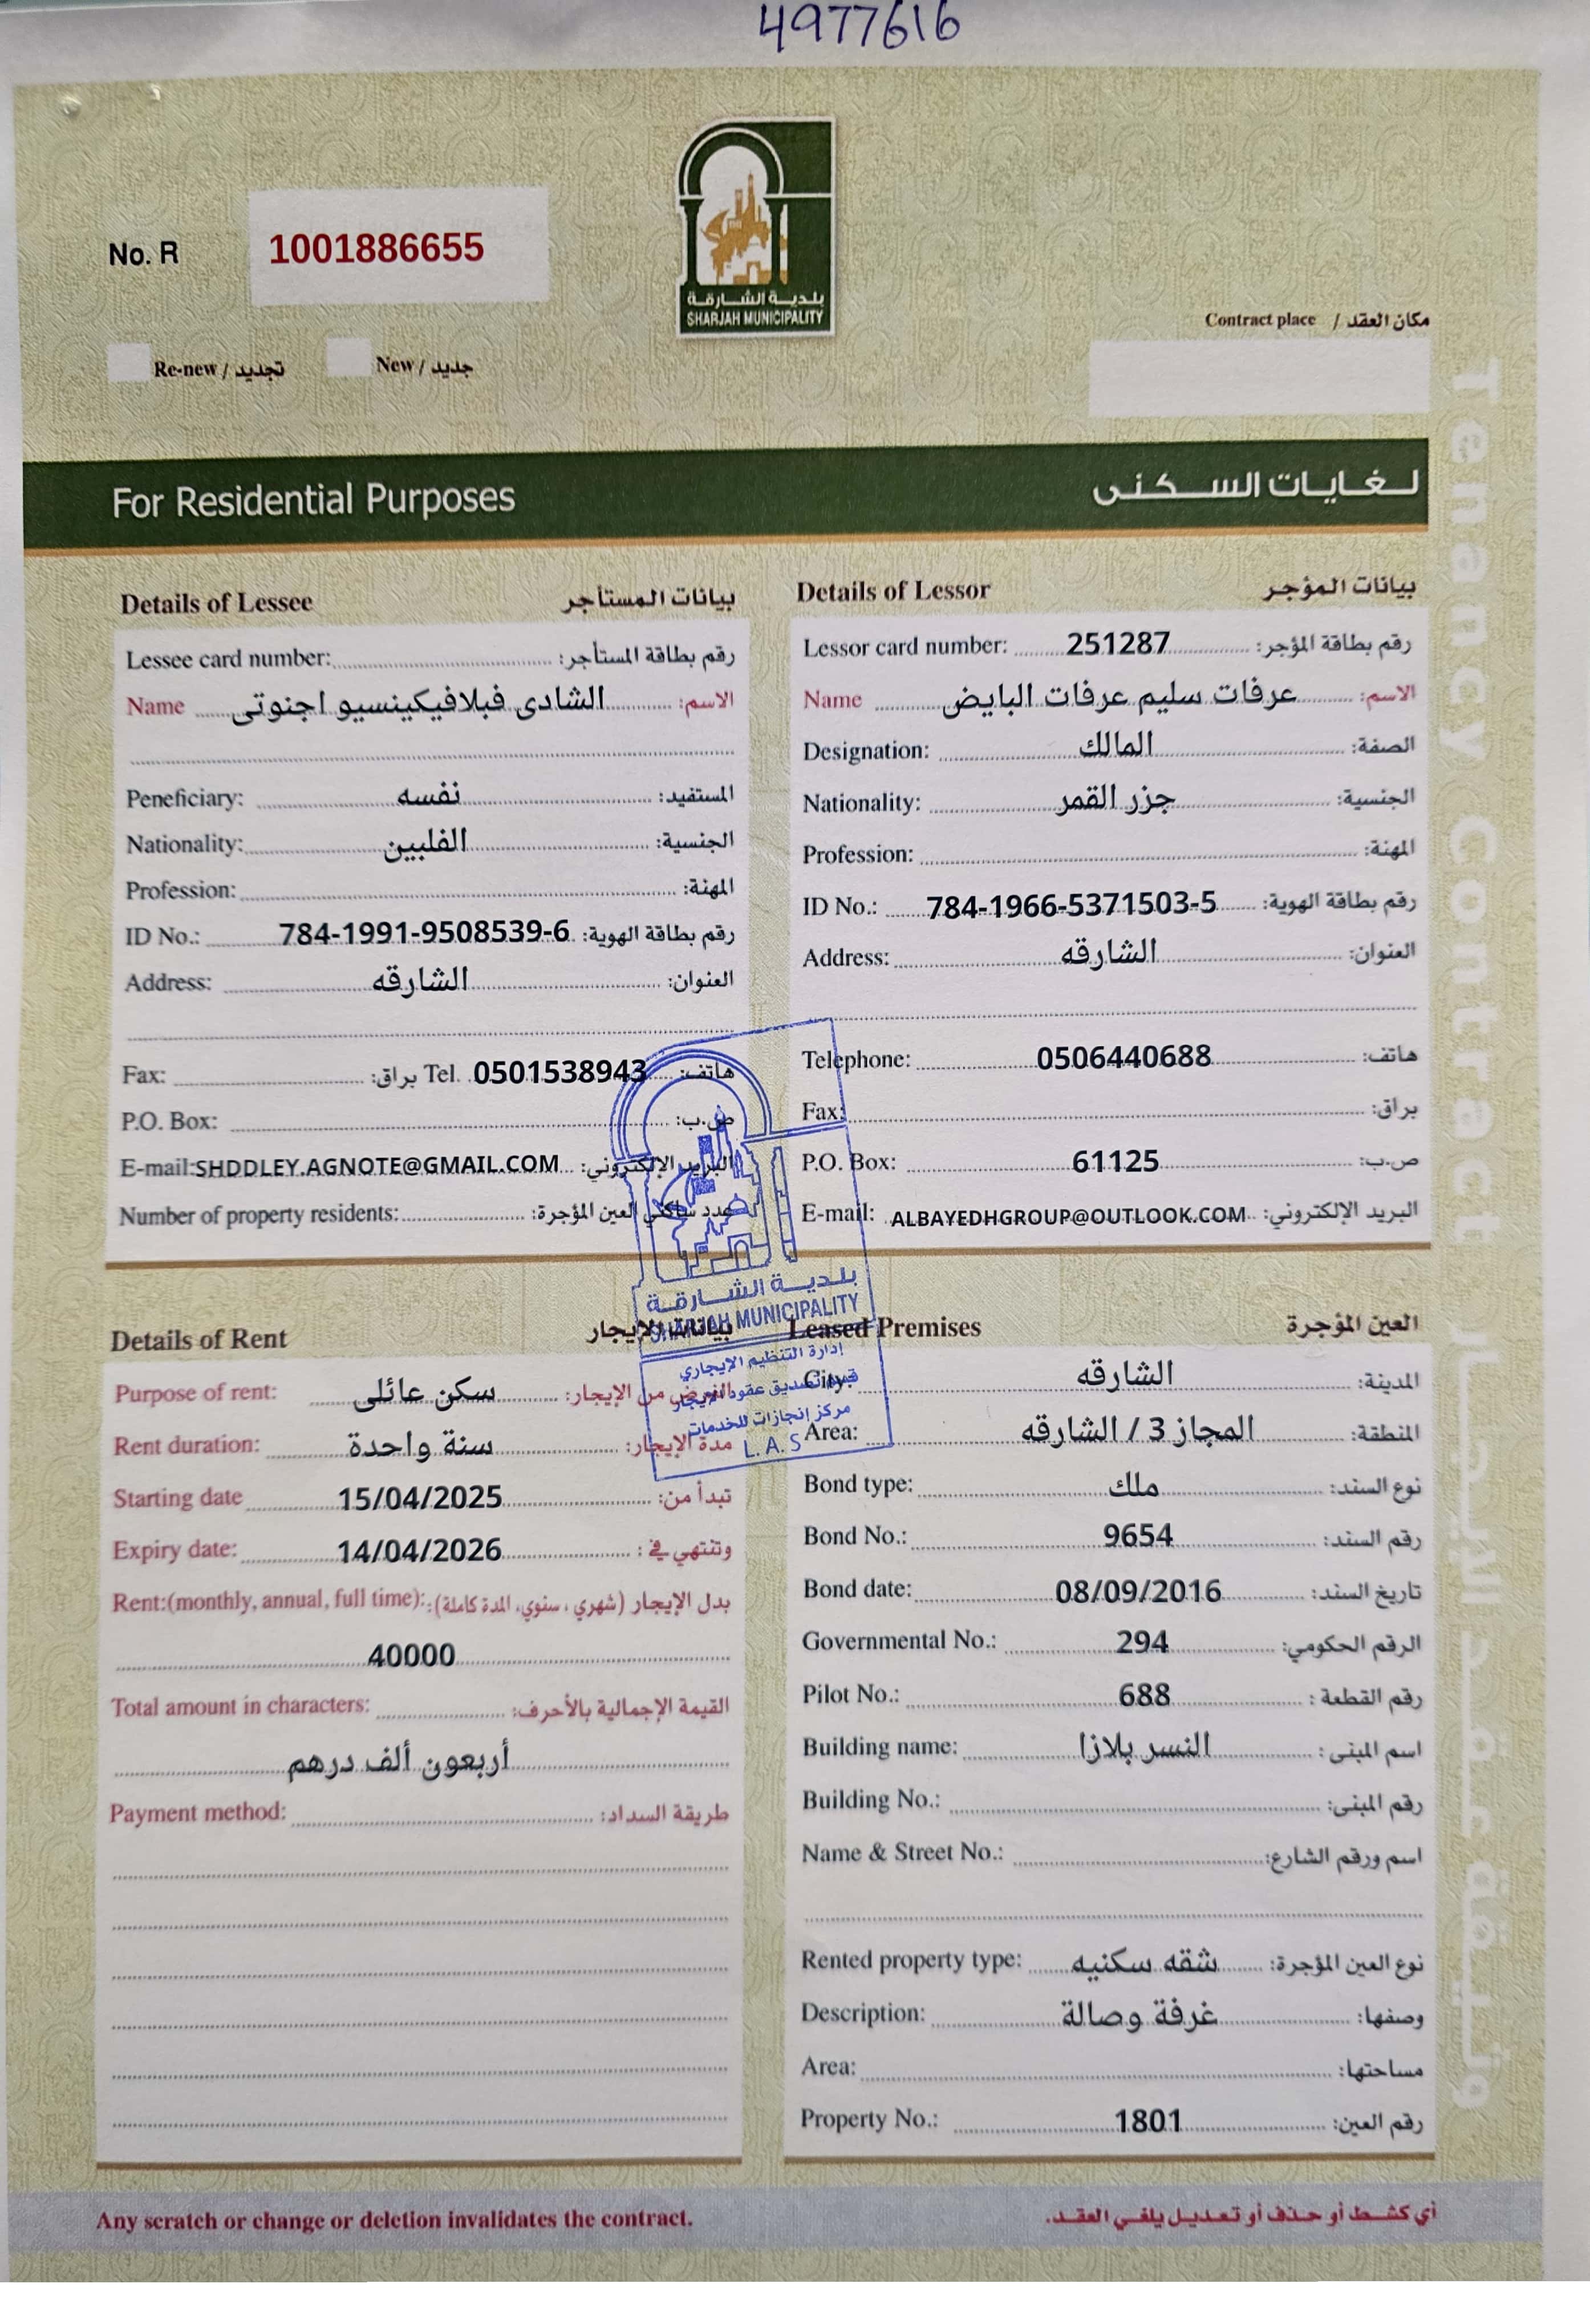 4977616
No. R 1001886655
بلدية الشارقة
SHARJAH MUNICIPALITY
Contract place / مكان العقد
Re-new / تجديد New / جديد
Tenancy Contract
For Residential Purposes لغايات السكنى
Details of Lessee بيانات المستأجر
Lessee card number: رقم بطاقة المستأجر:
Name الشادى فبلافيكينسيو اجنوتى الاسم:
Peneficiary: نفسه المستفيد:
Nationality: الفلبين الجنسية:
Profession: المهنة:
ID No.: 784-1991-9508539-6 رقم بطاقة الهوية:
Address: الشارقه العنوان:
Fax: براق: Tel. 0501538943 هاتف:
P.O. Box: ص.ب:
E-mail: SHDDLEY.AGNOTE@GMAIL.COM البريد الإلكتروني:
Number of property residents: عدد ساكني العين المؤجرة:
Details of Lessor بيانات المؤجر
Lessor card number: 251287 رقم بطاقة المؤجر:
Name عرفات سليم عرفات البايض الاسم:
Designation: المالك الصفة:
Nationality: جزر القمر الجنسية:
Profession: المهنة:
ID No.: 784-1966-5371503-5 رقم بطاقة الهوية:
Address: الشارقه العنوان:
Telephone: 0506440688 هاتف:
Fax: براق:
P.O. Box: 61125 ص.ب:
E-mail: ALBAYEDHGROUP@OUTLOOK.COM البريد الإلكتروني:
بلدية الشارقة
SHARJAH MUNICIPALITY
إدارة التنظيم الإيجاري
قسم تصديق عقود الإيجار
مركز إنجازات للخدمات
L.A.S
Details of Rent بيانات الإيجار
Purpose of rent: سكن عائلى الغرض من الإيجار:
Rent duration: سنة واحدة مدة الإيجار:
Starting date 15/04/2025 تبدأ من:
Expiry date: 14/04/2026 وتنتهي في:
Rent:(monthly, annual, full time): بدل الإيجار (شهري، سنوي، المدة كاملة):
40000
Total amount in characters: القيمة الإجمالية بالأحرف:
أربعون ألف درهم
Payment method: طريقة السداد:
Leased Premises العين المؤجرة
City: الشارقه المدينة:
Area: المجاز 3 / الشارقه المنطقة:
Bond type: ملك نوع السند:
Bond No.: 9654 رقم السند:
Bond date: 08/09/2016 تاريخ السند:
Governmental No.: 294 الرقم الحكومي:
Pilot No.: 688 رقم القطعة:
Building name: النسر بلازا اسم المبنى:
Building No.: رقم المبنى:
Name & Street No.: اسم ورقم الشارع:
Rented property type: شقه سكنيه نوع العين المؤجرة:
Description: غرفة وصالة وصفها:
Area: مساحتها:
Property No.: 1801 رقم العين:
Any scratch or change or deletion invalidates the contract. أي كشط أو حذف أو تعديل يلغي العقد.